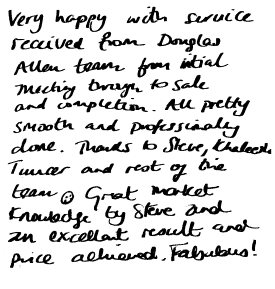 Very happy with service
received from Douglas
Allen team from intial
meeting throgh to sale
and completion. All pretty
smooth and professionaly
done. Thanks to Steve, Khaleeda
Tuncer and rest of the
team ☺ Great market
knowledge by Steve and
an excellent result and
price achieved. Fabulous!